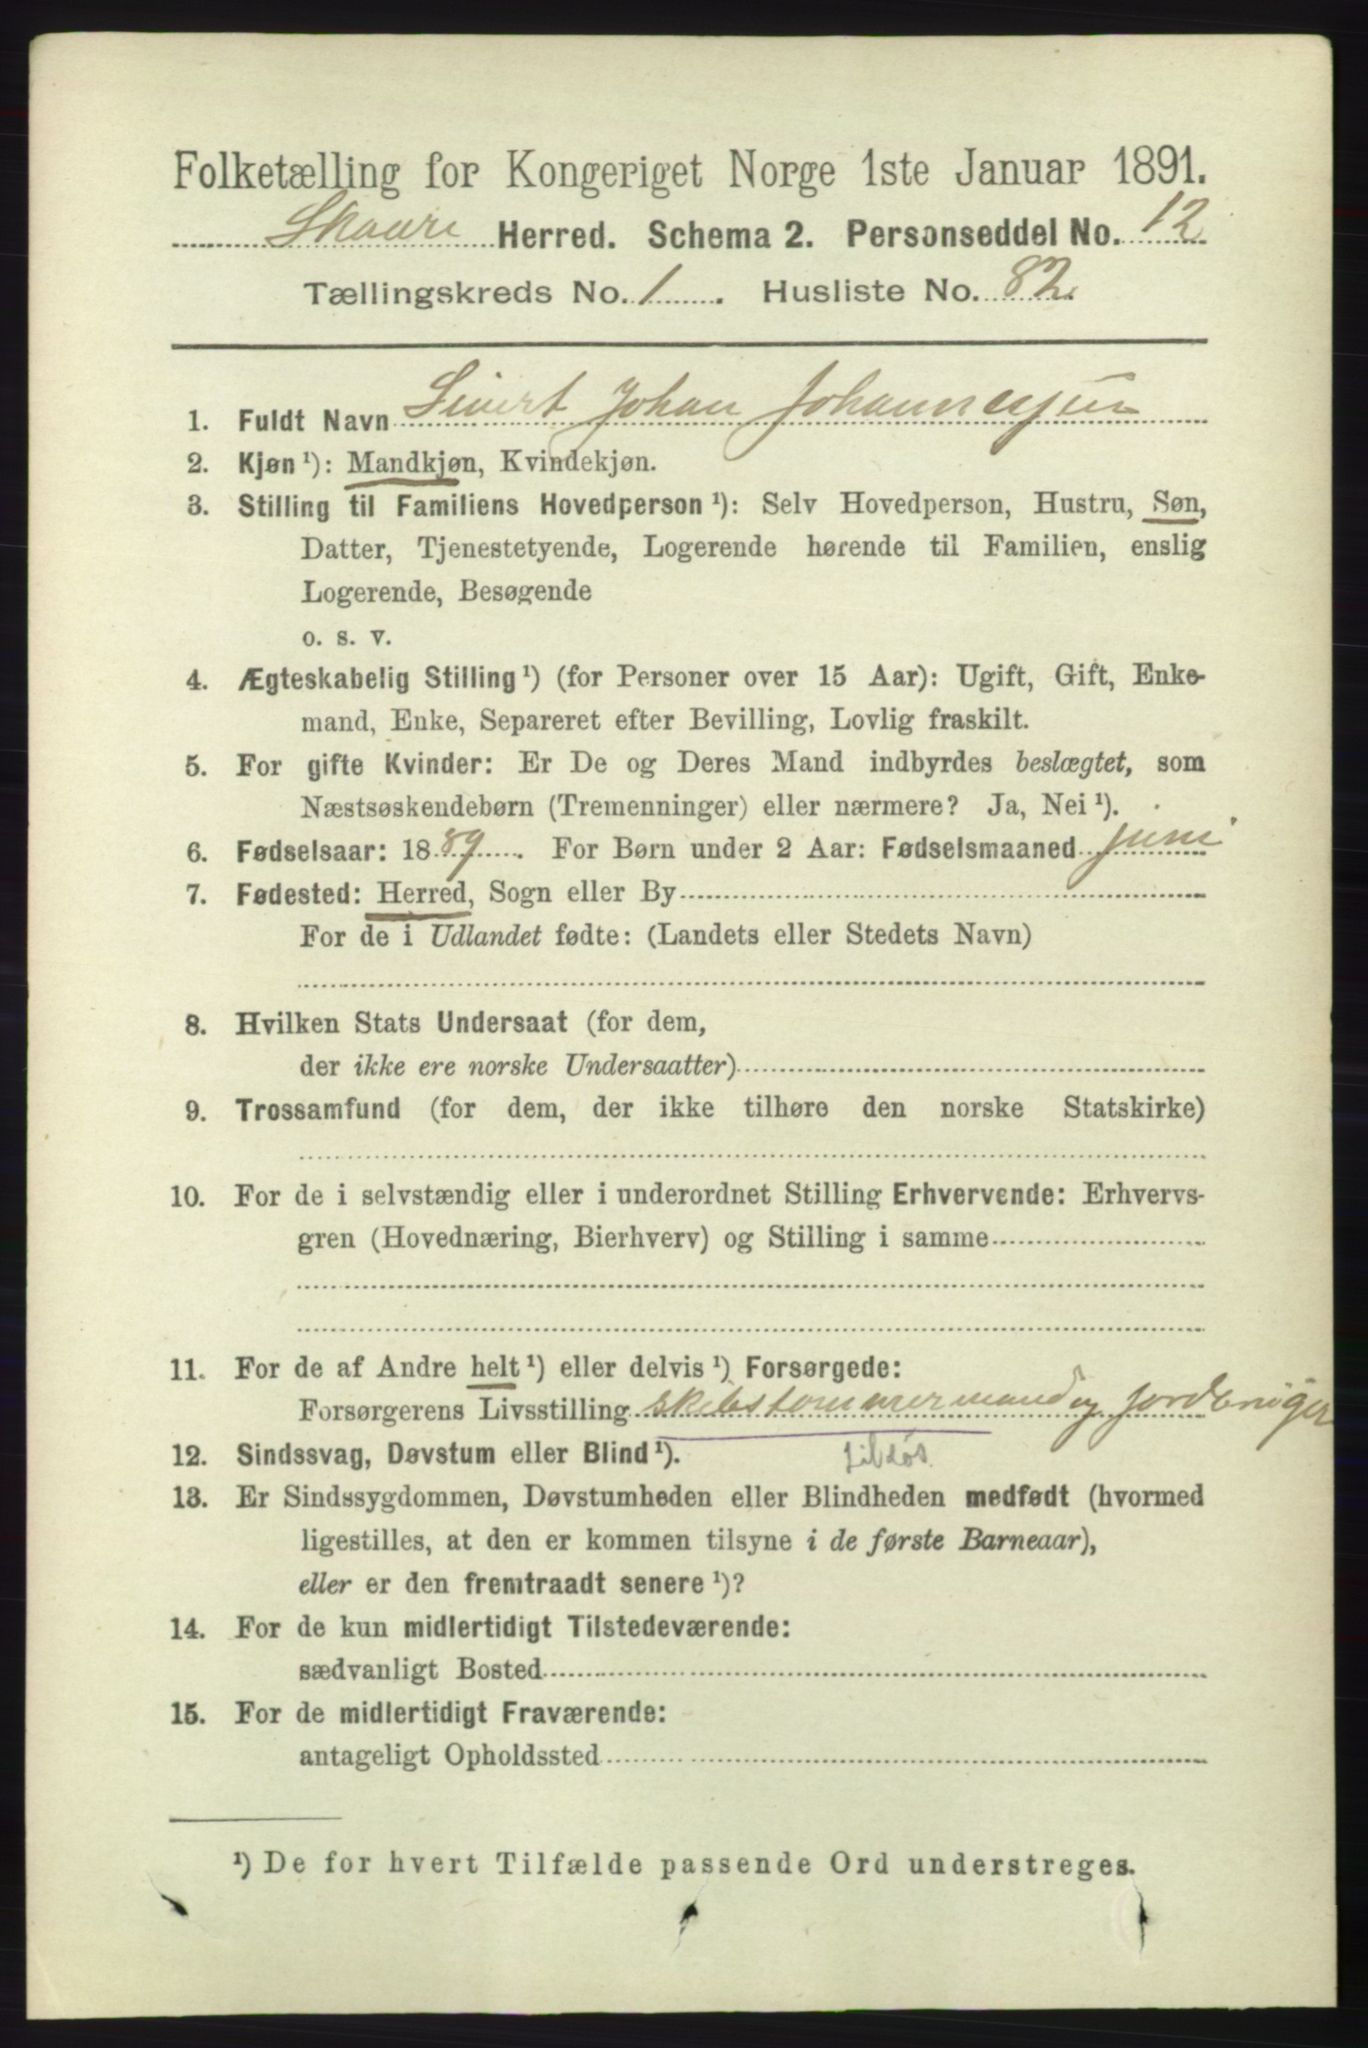 Folketælling for Kongeriget Norge 1ste Januar 1891.
Skaare Herred. Schema 2. Personseddel No. 12
Tællingskreds No. 1. Husliste No. 82.
1. Fuldt Navn Sivert Johan Johannesjun
2. Kjøn ¹): Mandkjøn, Kvindekjøn.
3. Stilling til Familiens Hovedperson ¹): Selv Hovedperson, Hustru, Søn,
Datter, Tjenestetyende, Logerende hørende til Familien, enslig
Logerende, Besøgende
o. s. v.
4. Ægteskabelig Stilling ¹) (for Personer over 15 Aar): Ugift, Gift, Enke-
mand, Enke, Separeret efter Bevilling, Lovlig fraskilt.
5. For gifte Kvinder: Er De og Deres Mand indbyrdes beslægtet, som
Næstsøskendebørn (Tremenninger) eller nærmere? Ja, Nei ¹).
6. Fødselsaar: 1889. For Børn under 2 Aar: Fødselsmaaned juni
7. Fødested: Herred, Sogn eller By
For de i Udlandet fødte: (Landets eller Stedets Navn)
8. Hvilken Stats Undersaat (for dem,
der ikke ere norske Undersaatter)
9. Trossamfund (for dem, der ikke tilhøre den norske Statskirke)
10. For de i selvstændig eller i underordnet Stilling Erhvervende: Erhvervs-
gren (Hovednæring, Bierhverv) og Stilling i samme
11. For de af Andre helt ¹) eller delvis ¹) Forsørgede:
Forsørgerens Livsstilling skibstømmermand og jordbruger
12. Sindssvag, Døvstum eller Blind ¹).
13. Er Sindssygdommen, Døvstumheden eller Blindheden medfødt (hvormed
ligestilles, at den er kommen tilsyne i de første Barneaar),
eller er den fremtraadt senere ¹)?
14. For de kun midlertidigt Tilstedeværende:
sædvanligt Bosted
15. For de midlertidigt Fraværende:
antageligt Opholdssted
¹) De for hvert Tilfælde passende Ord understreges.